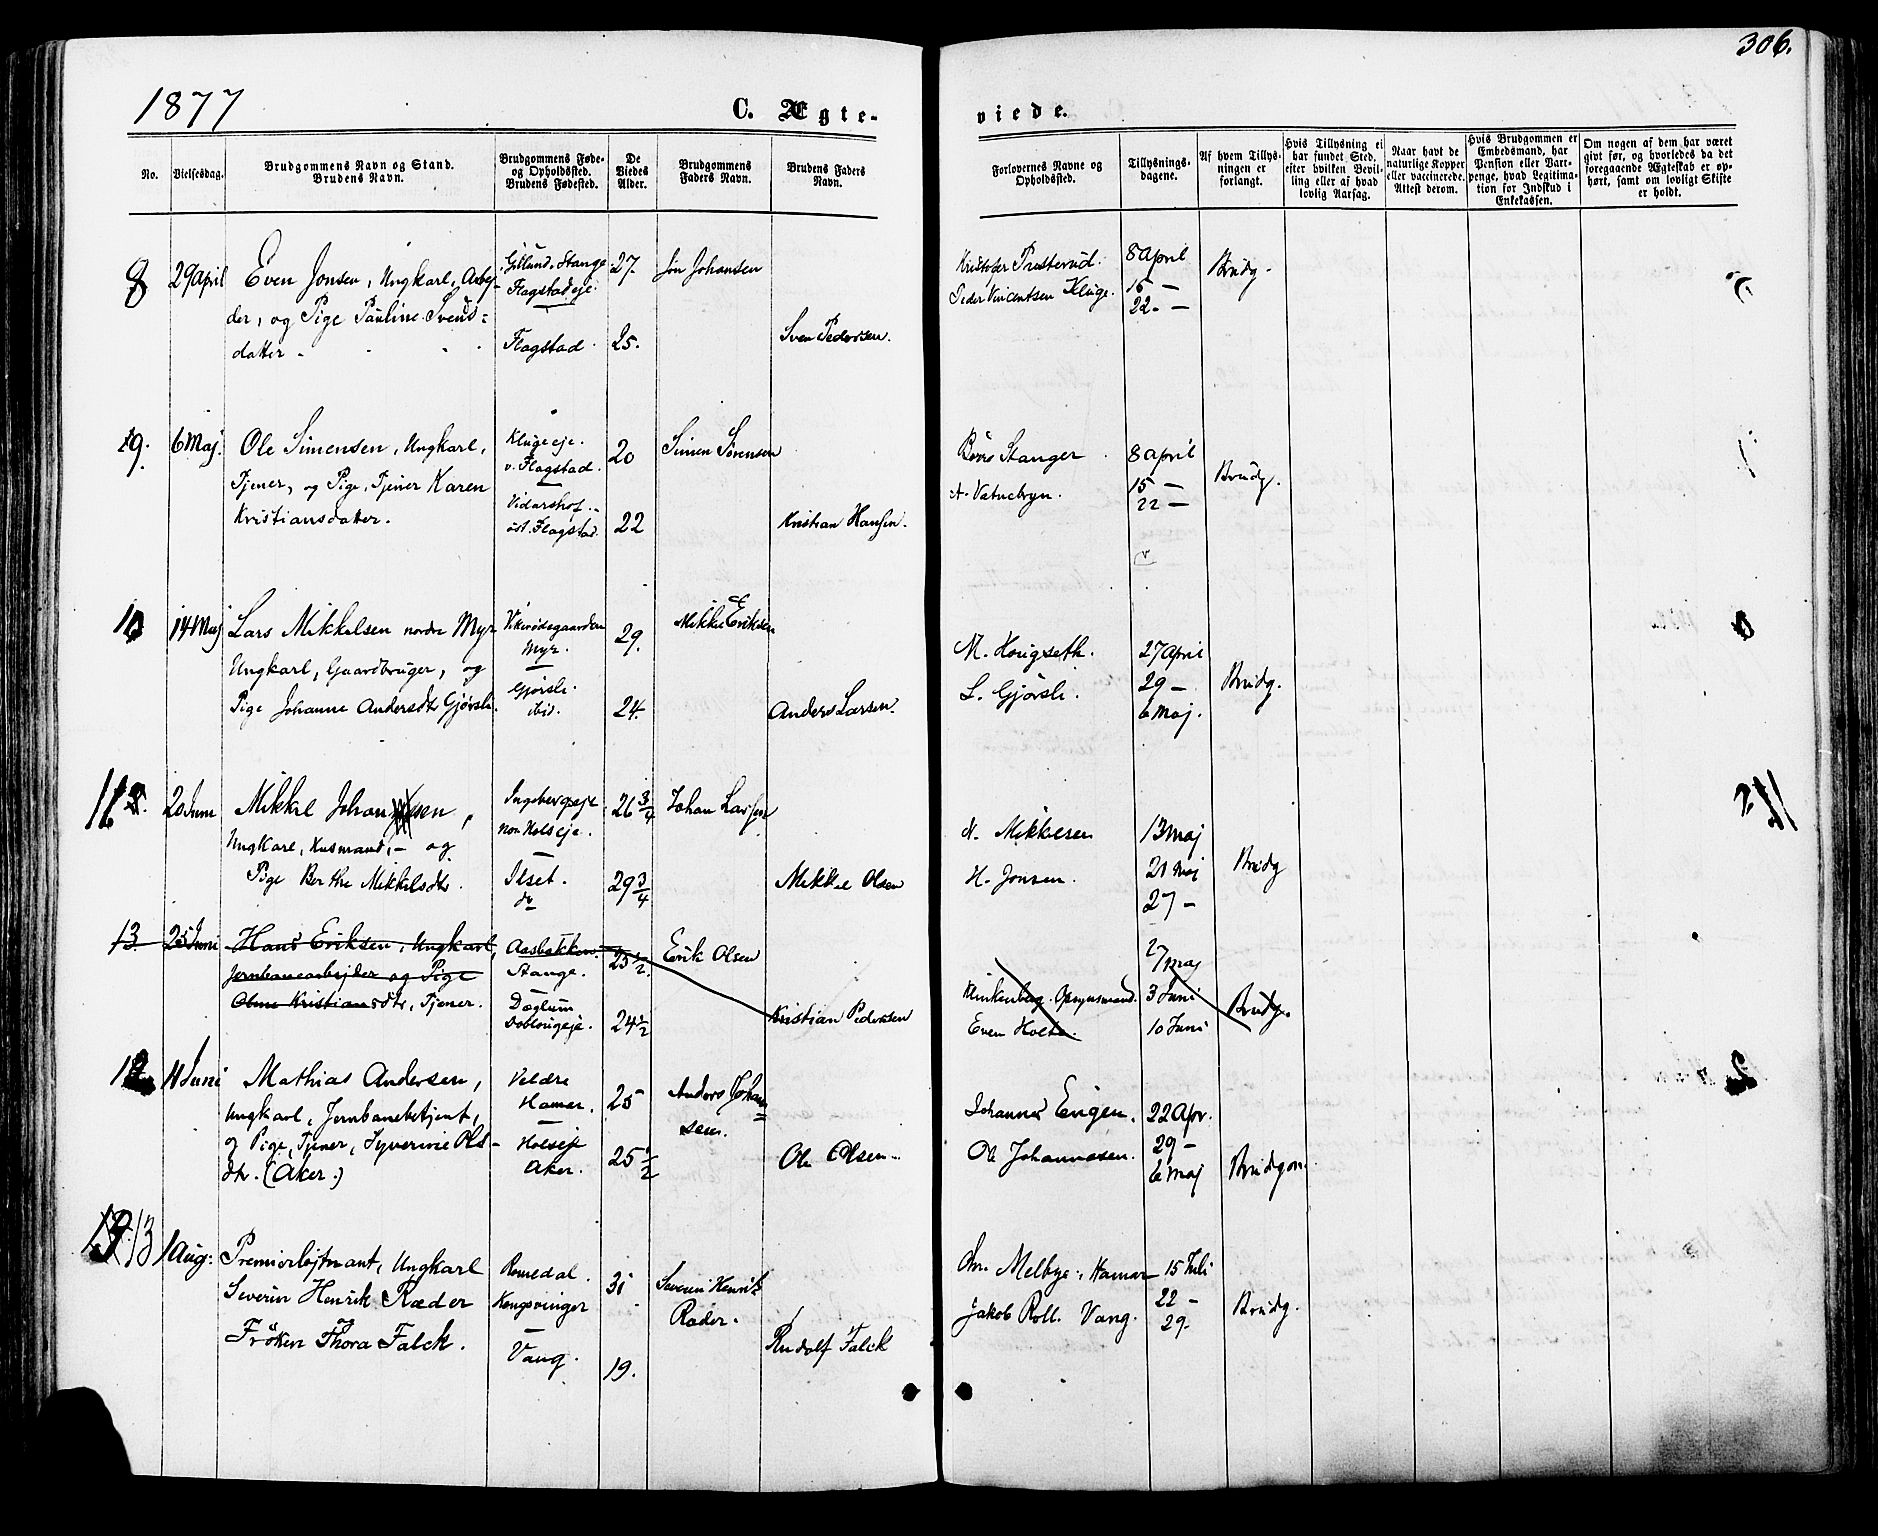 306.
1877
C. Ægte-
viede.
No.
Vielsesdag.
Brudgommens Navn og Stand.
Brudens Navn.
Brudgommens Føde-
og Opholdssted.
Brudens Fødested.
De
Viedes
Alder.
Brudgommens
Faders Navn.
Brudens Faders
Navn.
Forlovernes Navne og
Opholdssted.
Tillysnings-
dagene.
Af hvem Tillys-
ningen er
forlangt.
Hvis Tillysning ei
har fundet Sted,
efter hvilken Bevil-
ling eller af hvad
lovlig Aarsag.
Naar havt de
naturlige Kopper
eller vaccinerede.
Attest derom.
Hvis Brudgommen er
Embedsmand, har
Pension eller Vart-
penge, hvad Legitima-
tion for Indskud i
Enkekassen.
Om nogen af dem har været
givt før, og hvorledes da det
foregaaende Ægteskab er op-
hørt, samt om lovligt Skifte
er holdt.
8 29 April Even Jonsen, Ungkarl, Arbej-
der, og Pige Pauline Svends-
datter
Stange
Flagstadeje.
Flagstad.
27.
25.
Jon Johansen
Sven Pedersen.
Kristofer Presterud.
Peder Vincentsen Kluge.
8 April
15 —
22. —
Brudg.
9. 6 Maj. Ole Simensen, Ungkarl,
Tjener, og Pige, Tjener Karen
Kristiansdatter.
Klugeeje.
v. Flagstad.
Vidarshof.
øst. Flagstad.
20
22
Simen Sørensen
Kristian Hansen.
Børre Stanger
A. Vatnebryn.
8 April
15 —
22 —
Brudg.
10 14 Maj Lars Mikkelsen nordre Myr
Ungkarl, Gaardbruger, og
Pige Johanne Andersdtr Gjørsli.
Myr.
Gjørsli.
ibid.
29.
24.
Mikkel Eriksen
Anders Larsen.
M. Horigseth.
L. Gjørsli.
27 April
29 —
6 Maj.
Brudg.
11 20 Juni Mikkel Johansen,
Ungkarl, Husmand, — og
Pige Berthe Mikkelsdtr.
Ingebergseje
Ilset.
do
26 3/4
29 3/4
Johan Larsen
Mikkel Olsen
N. Mikkelsen
H. Jonsen.
13 Maj
21 Maj
27 —
Brudg
13 25 Juni Hans Eriksen, Ungkarl,
Jernbanearbejder og Pige
Oline Kristiansdtr, Tjener.
Aasbakken.
Stange.
Dæglum
Doblougeje.
25 1/2.
24 1/2
Erik Olsen
Kristian Pedersen
Klinkenberg. Opsynsmand.
Even Holte.
27 Maj
3 Juni
10 Juni
Brudg.
12 11 Juni Mathias Andersen,
Ungkarl, Jernbanebetjent,
og Pige, Tjener, Syverine Ols-
dtr. (Aker.)
Veldre
Hamar.
Holseje
Aker.
25
25 1/2
Anders Johan=
sen.
Ole Olsen
Johannes Engen.
Ole Johannesen.
22 Apr.
29 —
6 Maj
Brudgom.
13 1 Aug: Premierløjtnant, Ungkarl
Severin Henrik Ræder
Frøken Thora Falck.
Romedal.
Kongsvinger
Vang.
31
19.
Severin Henrik
Ræder.
Rudolf Falck
Chr. Melbye, Hamar
Jakob Roll. Vang.
15 Juli
22 —
29.
Brudg.